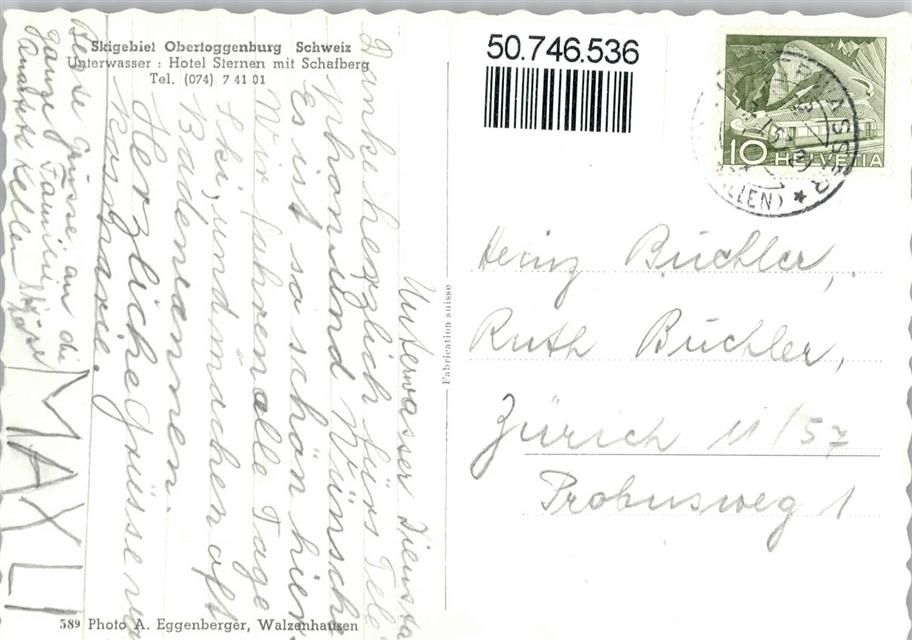 Skigebiet Obertoggenburg Schweiz
Unterwasser : Hotel Sternen mit Schafberg
Tel. (074) 7 41 01
Unterwasser Diensta
Danke herzlich fürs Tele
phon und Wünsche
es ist so schön hier
Wir fahren alle Tage
Ski, und machen oft
Bademannen.
Herzliche Grüsse von
Rosmarie.
Beste Grüsse an die
ganze Familie
Keller
MAXLI
589 Photo A. Eggenberger, Walzenhausen
Fabrication suisse
50.746.536
10 HELVETIA
Heinz Büchler,
Ruth Büchler,
Zürich 11/57
Probusweg 1